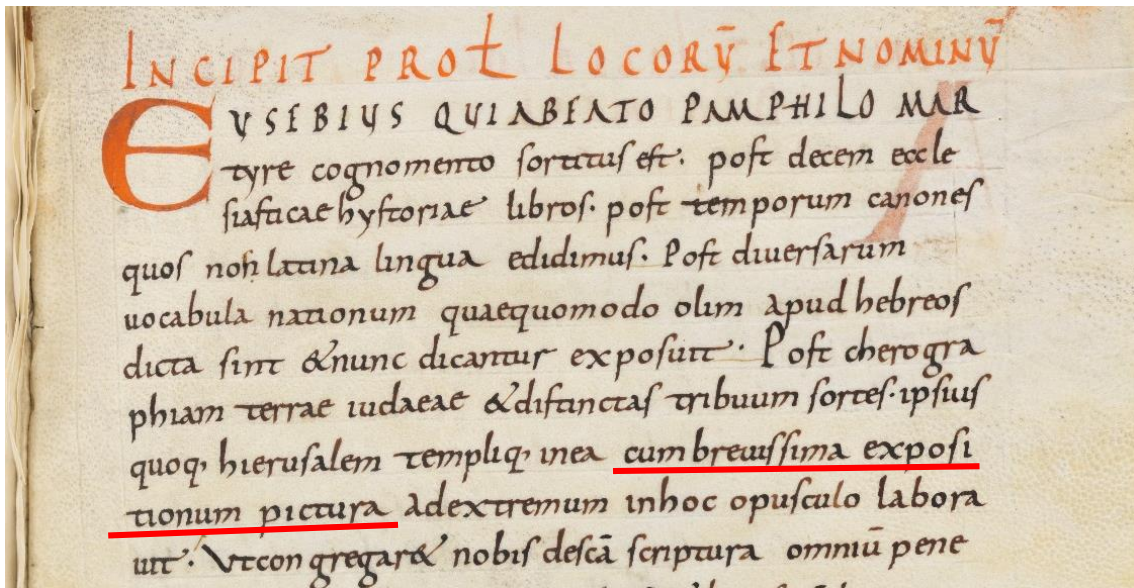 INCIPIT PROŁ LOCORŪ ET NOMINŪ
EUSEBIUS QUI ABEATO PAMPHILO MAR
tyre cognomento sortitus est· post decem eccle
siasticae hystoriae libros· post temporum canones
quos nos latina lingua edidimus· Post diuersarum
uocabula nationum quaequomodo olim apud hebreos
dicta sint &nunc dicantur exposuit· Post chorogra
phiam terrae iudaeae &distinctas tribuum sortes· ipsius
quoq, hierusalem templiq, inea cum breuissima exposi
tionum pictura adextremum inhoc opusculo labora
uit· Ut congregar& nobis descā scriptura omniū pene